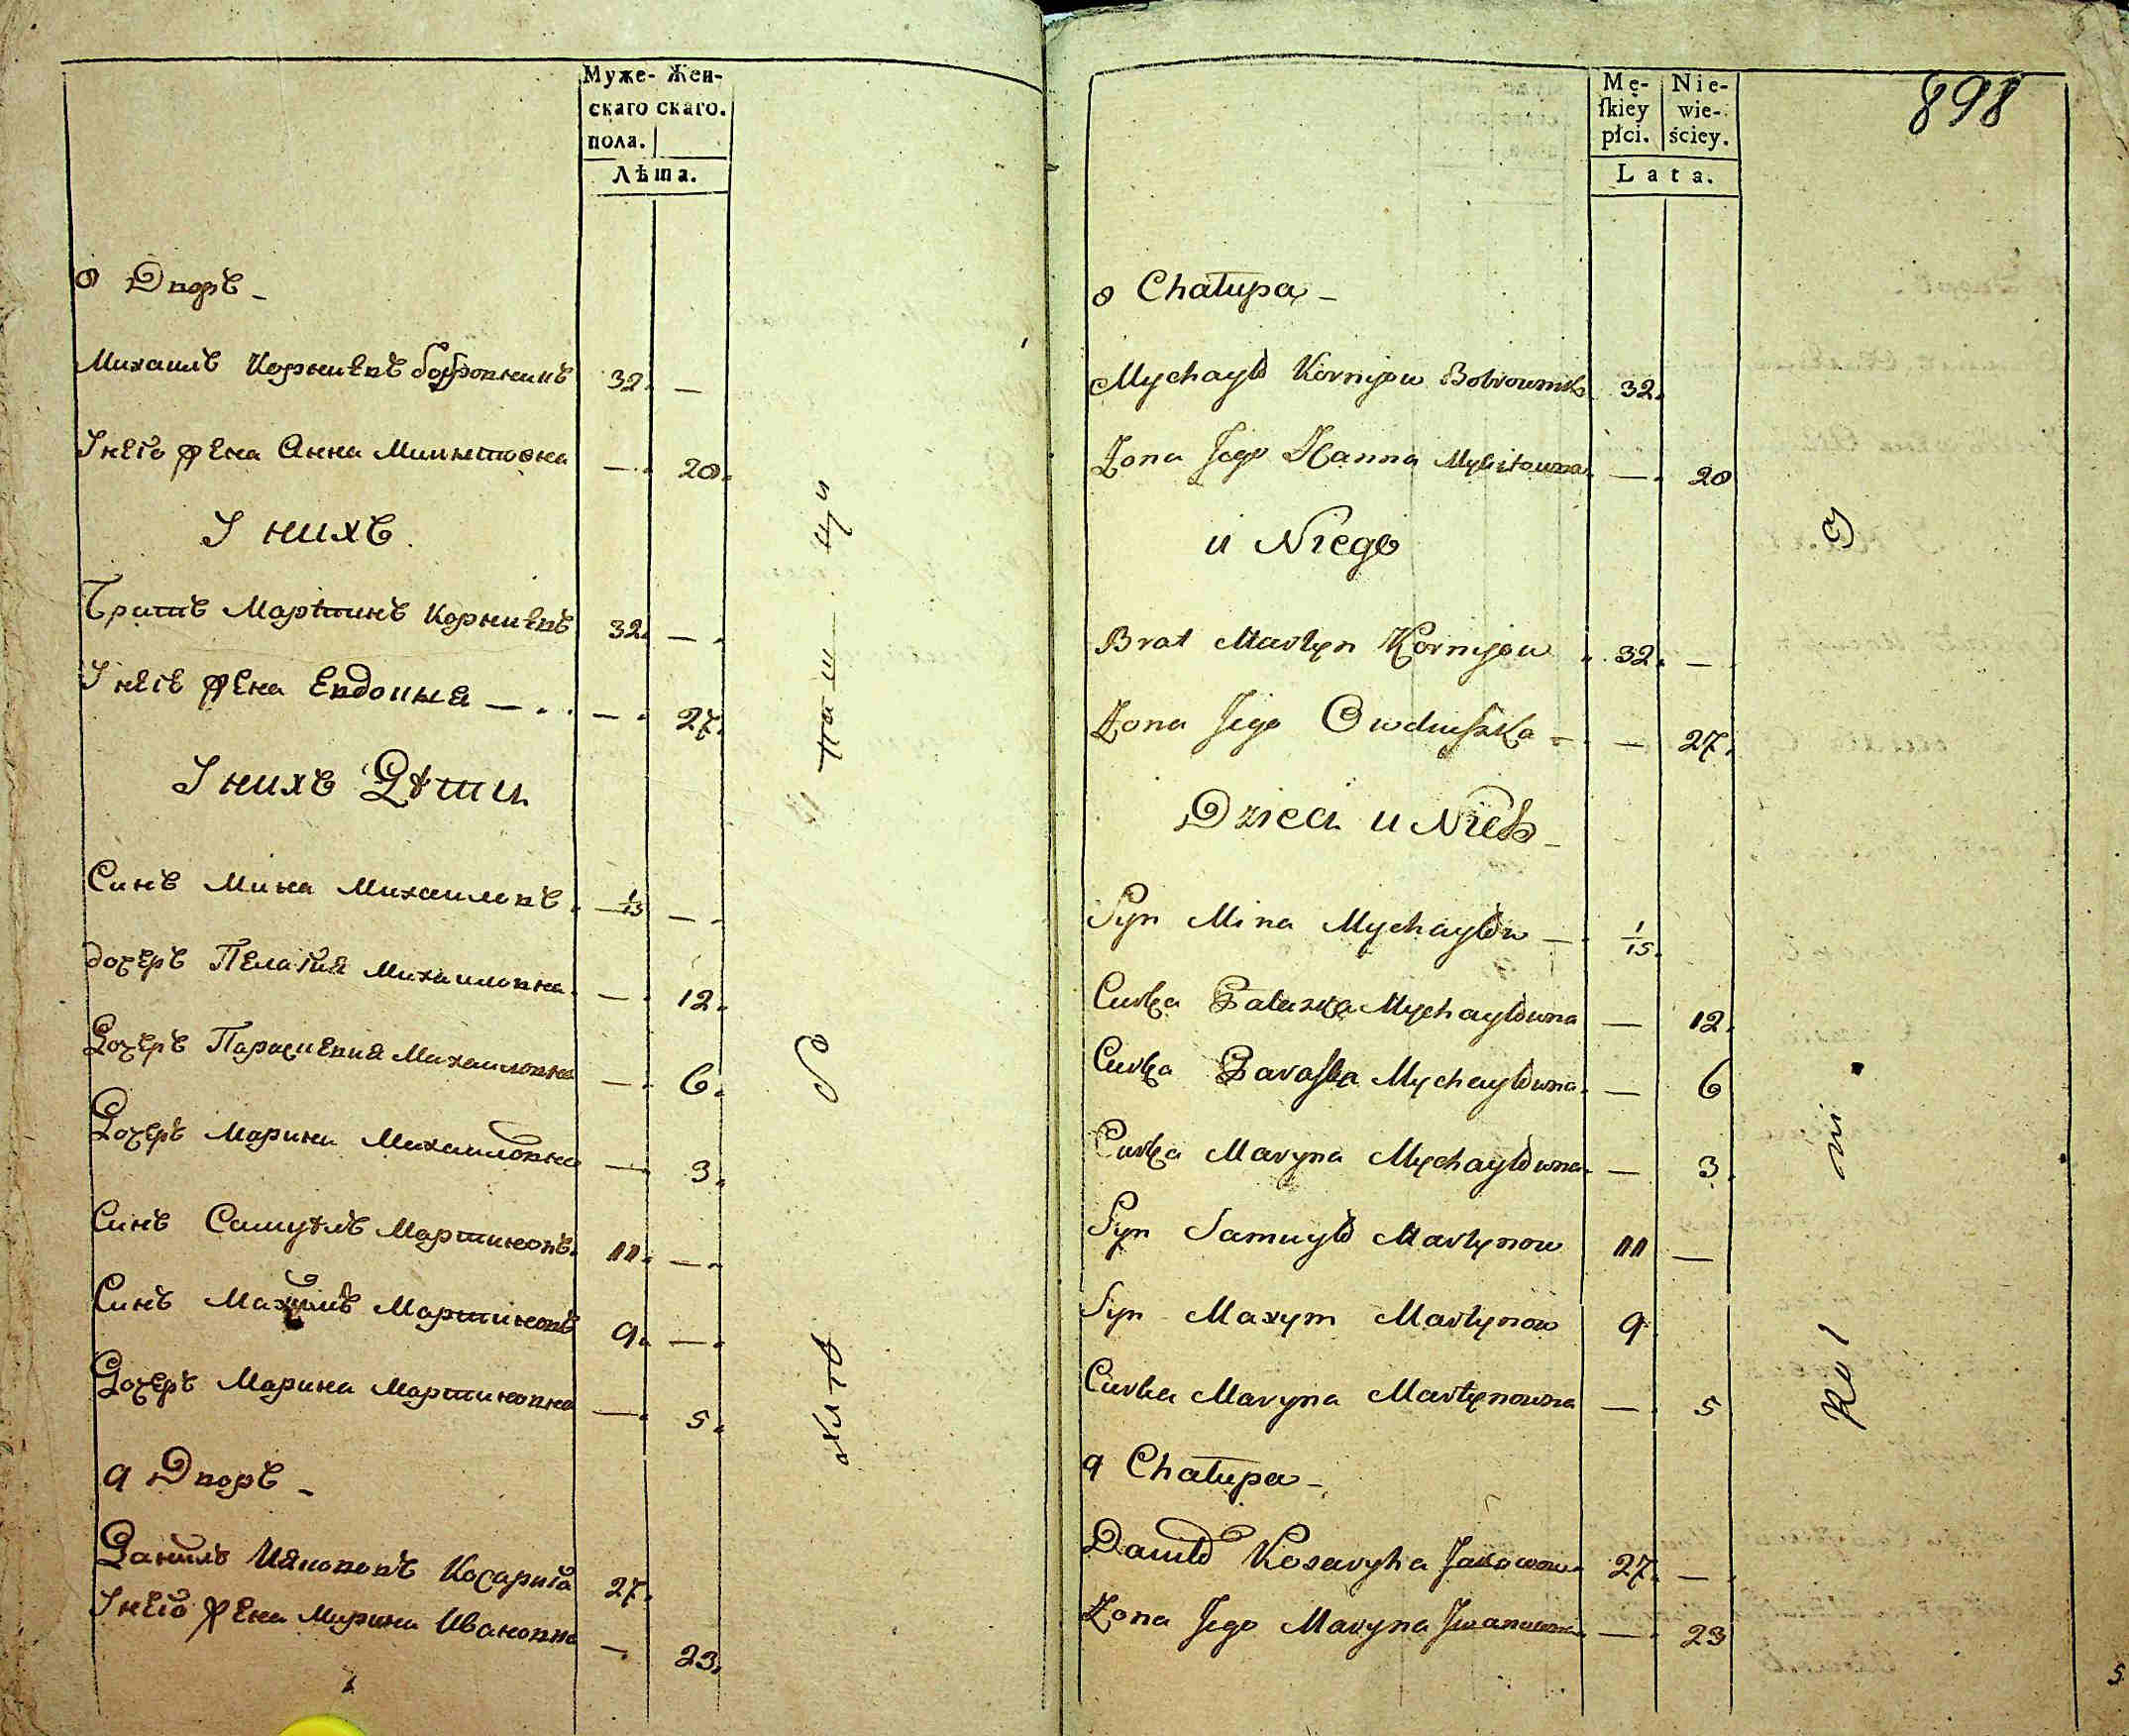 Муже- Жен-
скаго скаго.
пола.
Лѣта.
8 Дворъ
Михаилъ Корніевъ Бобровникъ 32. —
У него жена Анна Микитовна — 28.
У нихъ
Братъ Мартинъ Корніевъ 32. —
У него жена Евдокия — — 27.
У нихъ Дѣти
Синъ Мина Михаиловъ 1/15 —
дочеръ Пелагия Михаиловна — 12.
Дочеръ Параскевия Михаиловна — 6.
Дочеръ Марина Михаиловна — 3.
Синъ Самуѣлъ Мартиновъ 11. —
Синъ Махимъ Мартиновъ 9. —
Дочеръ Марина Мартиновна — 5.
9 Дворъ
Данилъ Иякововъ Косарига 27.
У него жена Марина Ивановна — 23.
898
Mę- Nie-
ſkiey wie-
płci. ściey.
Lata.
8 Chałupa
Mychayło Kornijow Bobrownik 32.
Zona Jego Hanna Mykitowna — 28
u Niego
Brat Martyn Kornijow 32. —
Zona Jego Owduſzka — 27.
Dzieci u Nich
Syn Mina Mychayłow — 1/15.
Curka Pałazka Mychayłowna — 12.
Curka Paraſka Mychayłowna — 6
Curka Maryna Mychayłowna — 3
Syn Samuyło Martynow 11 —
Syn Maxym Martynow 9
Curka Maryna Martynowna — 5
9 Chałupa
Daniło Kosaryha Jakowow 27. —
Zona Jego Maryna Iwanowna — 23